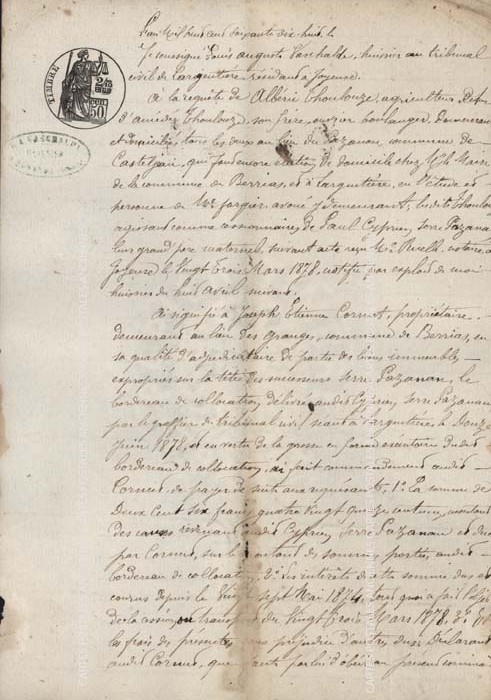 L'an Mil huit cent soixante dix huit le
Je soussigné Louis auguste Vaschalde, huissier au tribunal
civil de Largentière résidant à Joyeuse.
A la requête de Albéric Thoulouze, agriculteur
d'amédée Thoulouze, son frère, ouvrier boulanger, demeurant
et domiciliés tous les deux au lieu du Pazanan, commune de
Casteljau, qui font encore élection de domicile chez Mr le Maire
de la commune de Berrias, et à Largentière, en l'étude et
personne de Me avoué y demeurant, ledit Thoulouze
agissant comme cessionnaire de Paul Cyprien Serre Pazanan
leur grand père maternel, suivant acte reçu Me notaire à
Joyeuse le Vingt Trois Mars 1878, notifié par exploit de moi
huissier du huit avril suivant.
Ai signifié à Joseph Etienne Cornut, propriétaire
demeurant au lieu des Granges, commune de Berrias, en
sa qualité d'adjudicataire de partie des biens immeubles
expropriés sur la tête des successeurs Serre Pazanan, le
bordereau de collocation, délivré audit Cyprien Serre Pazanan
par le greffier du tribunal civil séant à Largentière, le Douze
Juin 1878, et en vertu de la grosse en forme exécutoire dudit
bordereau de collocation, ai fait commandement audit
Cornut de payer de suite aux requérants, 1° La somme de
Deux Cent six francs quatre vingt centimes, montant
des causes revenant audit Cyprien Serre Pazanan et dues
par Cornut, sur le montant des sommes portées audit
bordereau de collocation, 2° Les intérêts de cette somme dus et
courus depuis le Vingt sept Mai 1874, Tous quoi a fait l'objet
de la cession ou transport du Vingt Trois Mars 1878, 3° Et
les frais des présentes, sans préjudice d'autres dus. Déclarant
audit Cornut, que faute par lui d'obéir au présent comman
TIMBRE
50